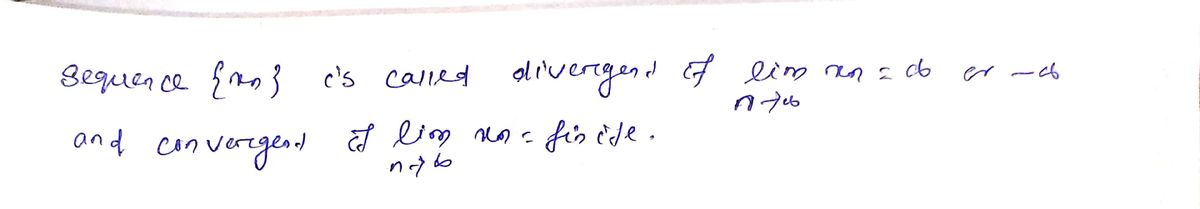 sequence {xn} is called divergent if lim n→∞ xn = ∞ or -∞
and convergent if lim n→∞ xn = finite.